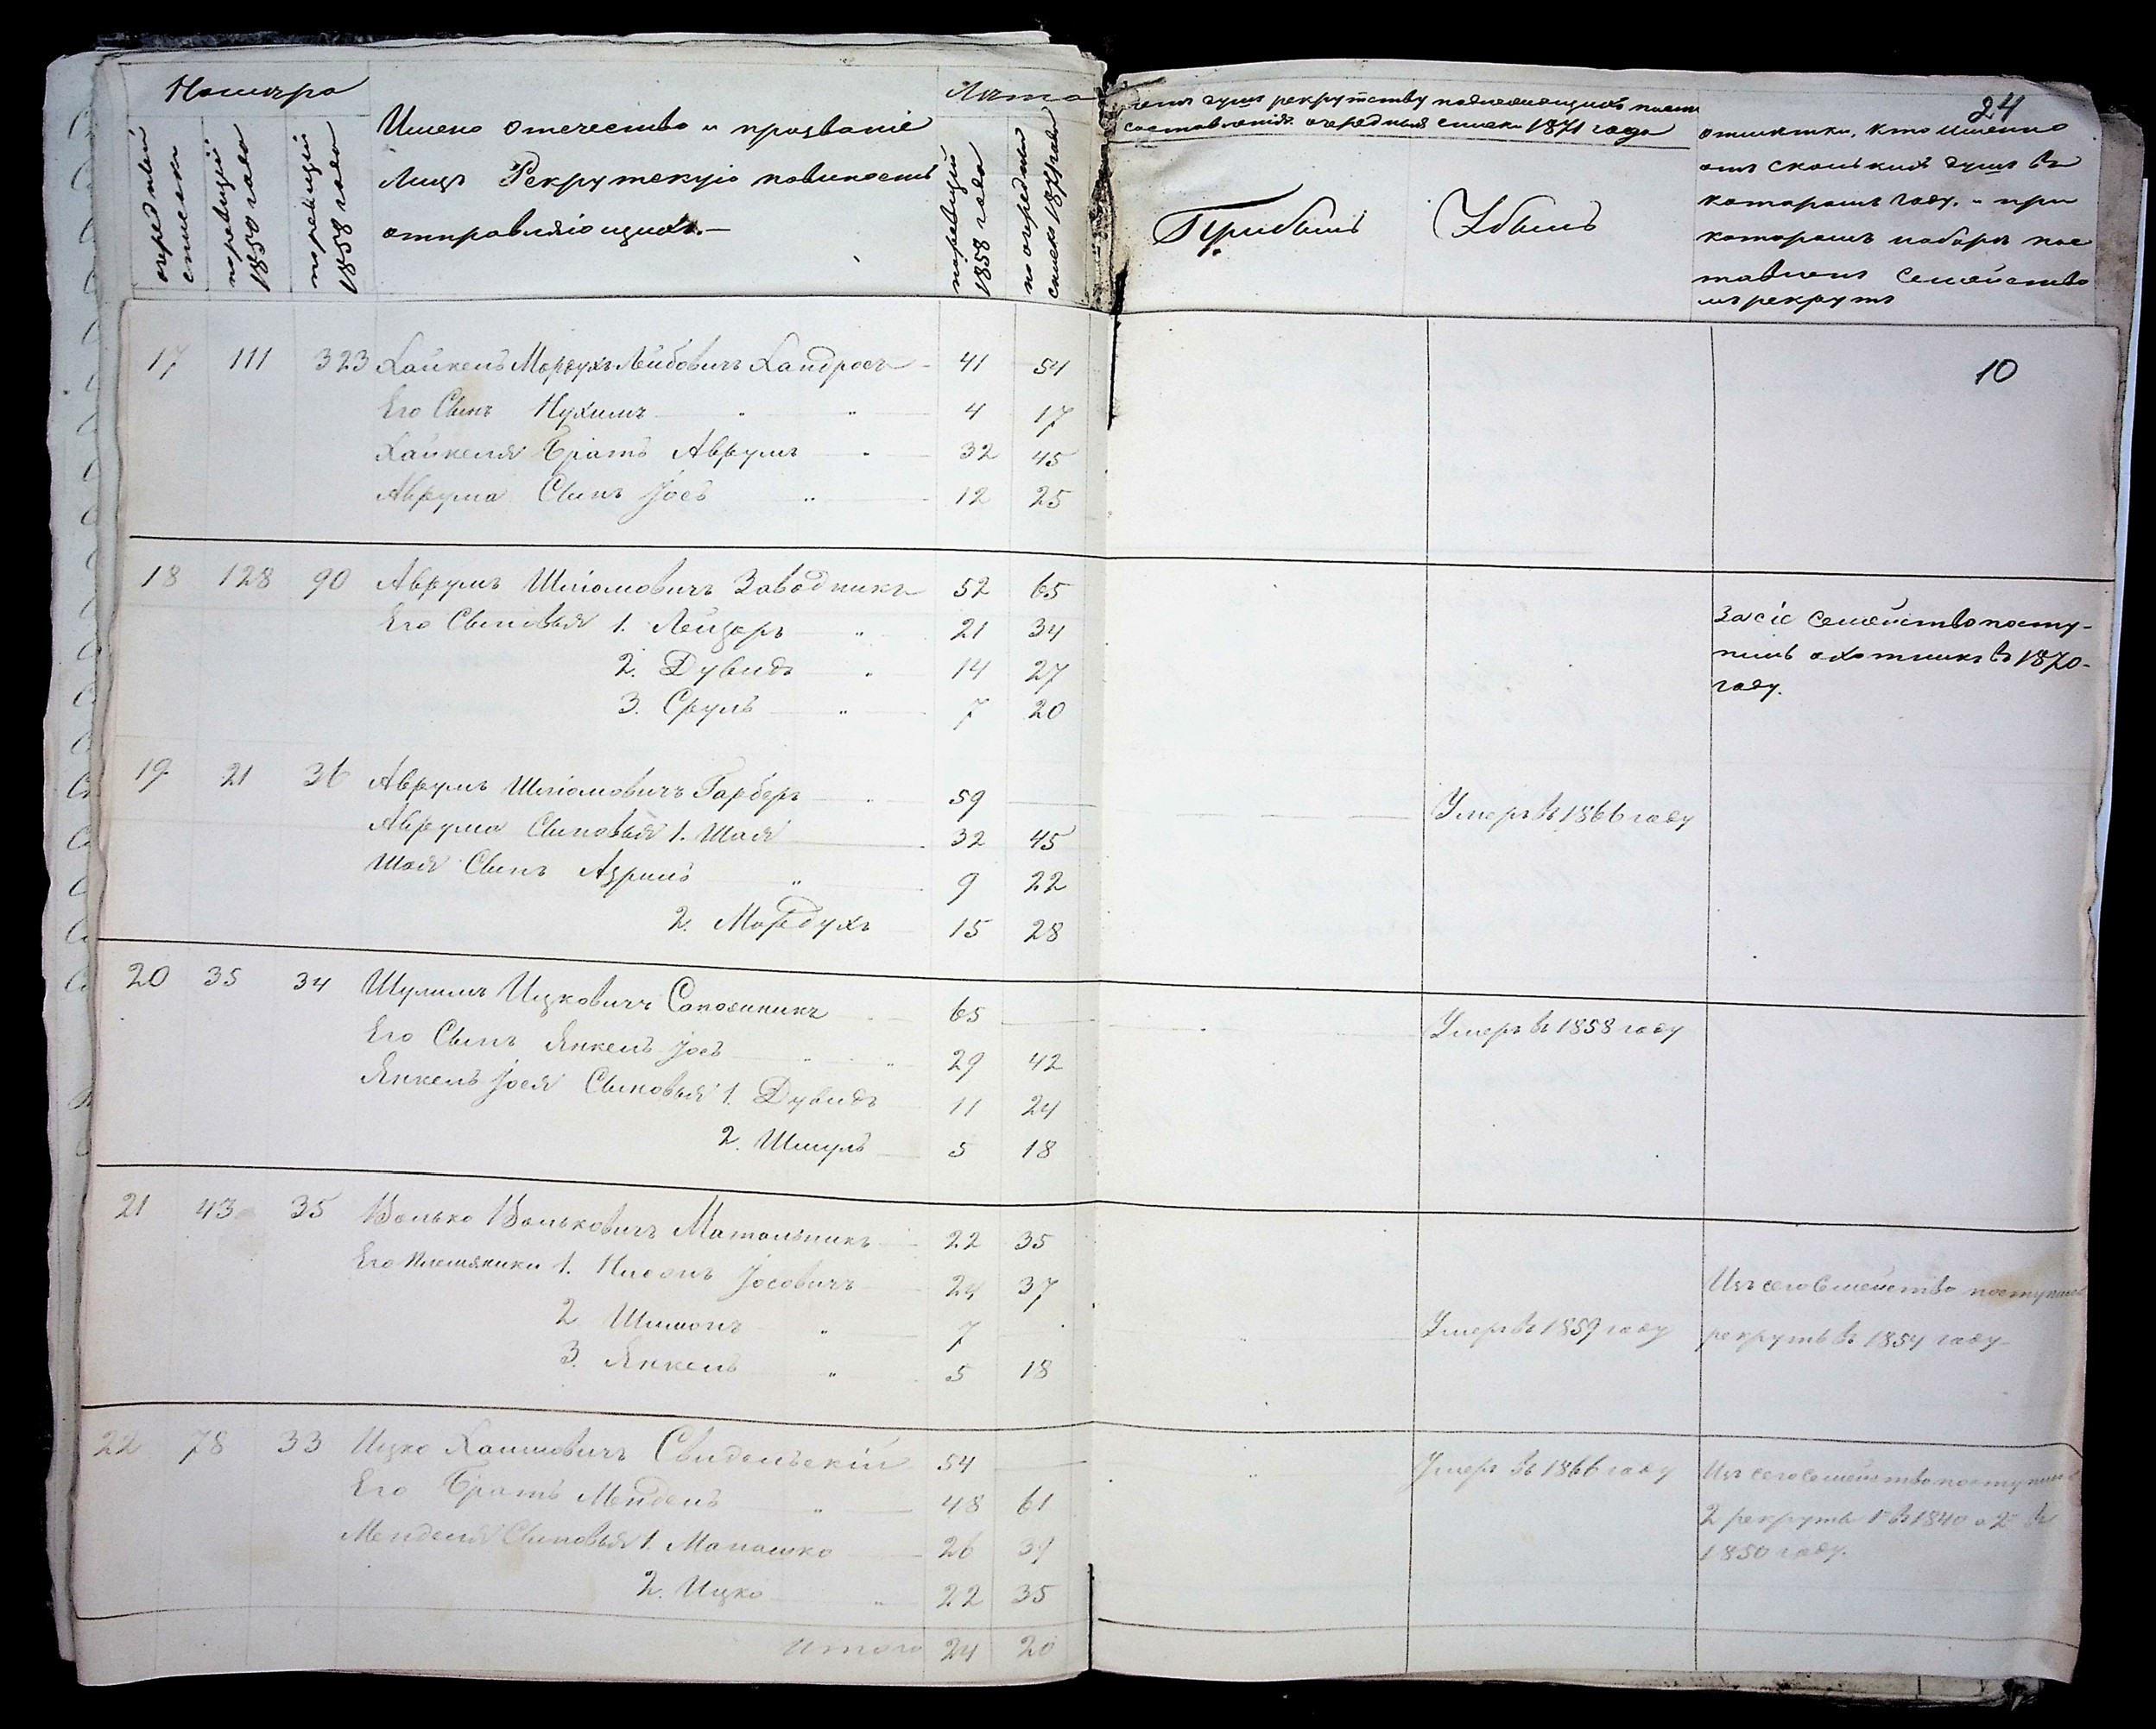 Номера
очередный списка
по ревизіи 1850 года
по ревизіи 1858 года
Имена отечество и прозваніе
Лицъ Рекрутскую повинность
отправляющихъ.—
Лѣта
по ревизіи 1858 года
по очередному списку 1871 года
душъ рекрутству подлежащихъ
составленія очереднаго списка 1871 года
Прибыль
Убыль
24
отмѣтки, кто именно
отъ сколькихъ душъ въ
которомъ году, и при
которомъ наборѣ пос
тавленъ семейство
мъ рекрутъ
17 111 323 Хайкель Мордухъ Лейбовичъ Хандросъ 41 54
10
Его Сынъ Нухимъ „ „ 4 17
Хайкеля Братъ Аврумъ „ 32 45
Аврума Сынъ Іось „ 12 25
18 128 90 Аврумъ Шліомовичъ Заводникъ 52 65
Его Сыновья 1. Лейзоръ „ 21 34
2. Дувидъ „ 14 27
3. Сруль „ 7 20
За сіе семейство посту-
пилъ охотникъ въ 1870-
году.
19 21 36 Аврумъ Шліомовичъ Гарберъ „ 59 — Умеръ въ 1866 году
Аврума Сыновья 1. Шая 32 45
Шая Сынъ Азриль „ 9 22
2. Мордухъ 15 28
20 35 34 Шулимъ Ицковичъ Сапожникъ 65 — Умеръ въ 1858 году
Его Сынъ Янкель Іось „ „ 29 42
Янкель Іося Сыновья 1. Дувидъ 11 24
2. Шмуль 5 18
21 43 35 Волько Вольковичъ Матальникъ 22 35
Его Племяники 1. Іосовичъ 24 37
2 Шимонъ „ 7 Умеръ въ 1859 году
3. Янкель „ 5 18
Изъ сего Семейства поступилъ
рекрутъ въ 1854 году
22 78 33 Ицко Хаимовичъ Свидельскій 54 — Умеръ въ 1866 году
Его Братъ Мендель „ 48 61
Менделя Сыновья 1. Манашко 26 39
2. Ицко „ 22 35
Изъ сего семейства поступило
2 рекрута 1й въ 1840 и 2й въ
1850 году.
Итого 24 20